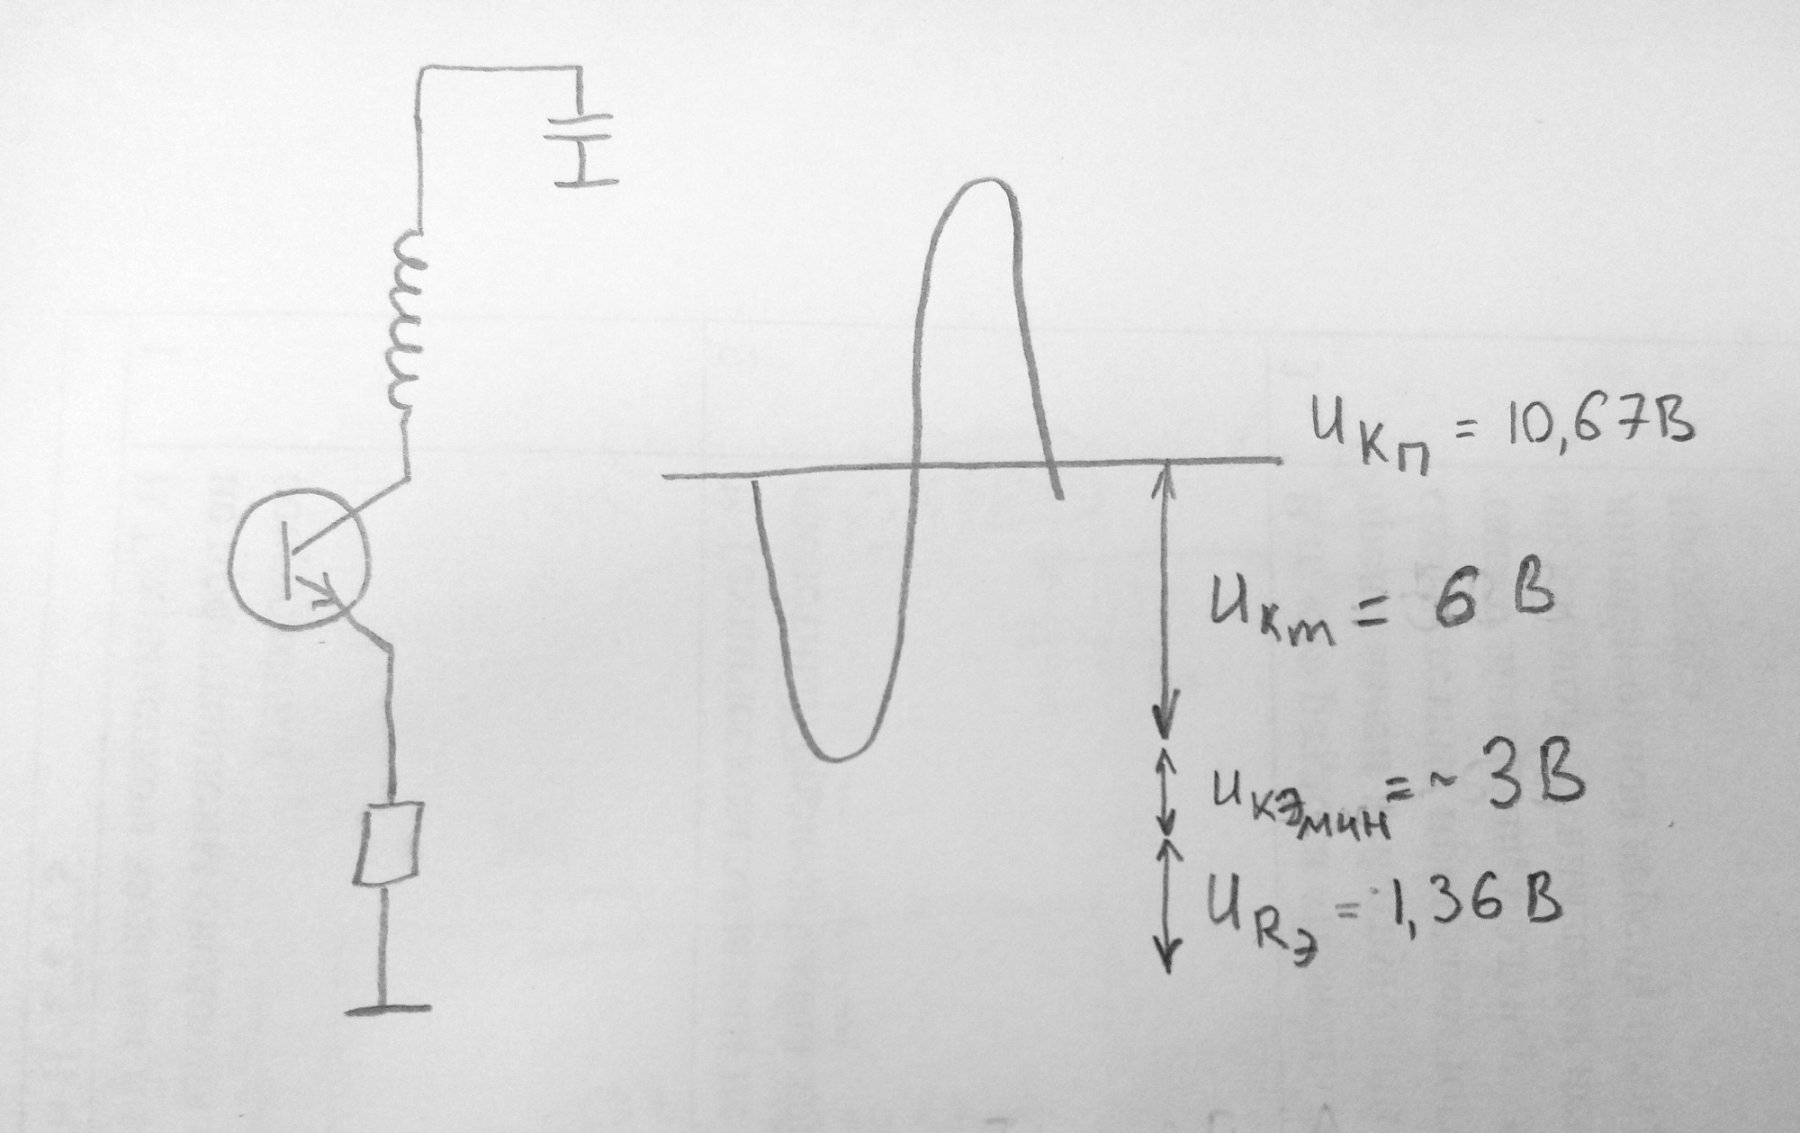 Uкп = 10,67В
Uкm = 6 В
UкэМИН = ~ 3 В
URэ = 1,36 В